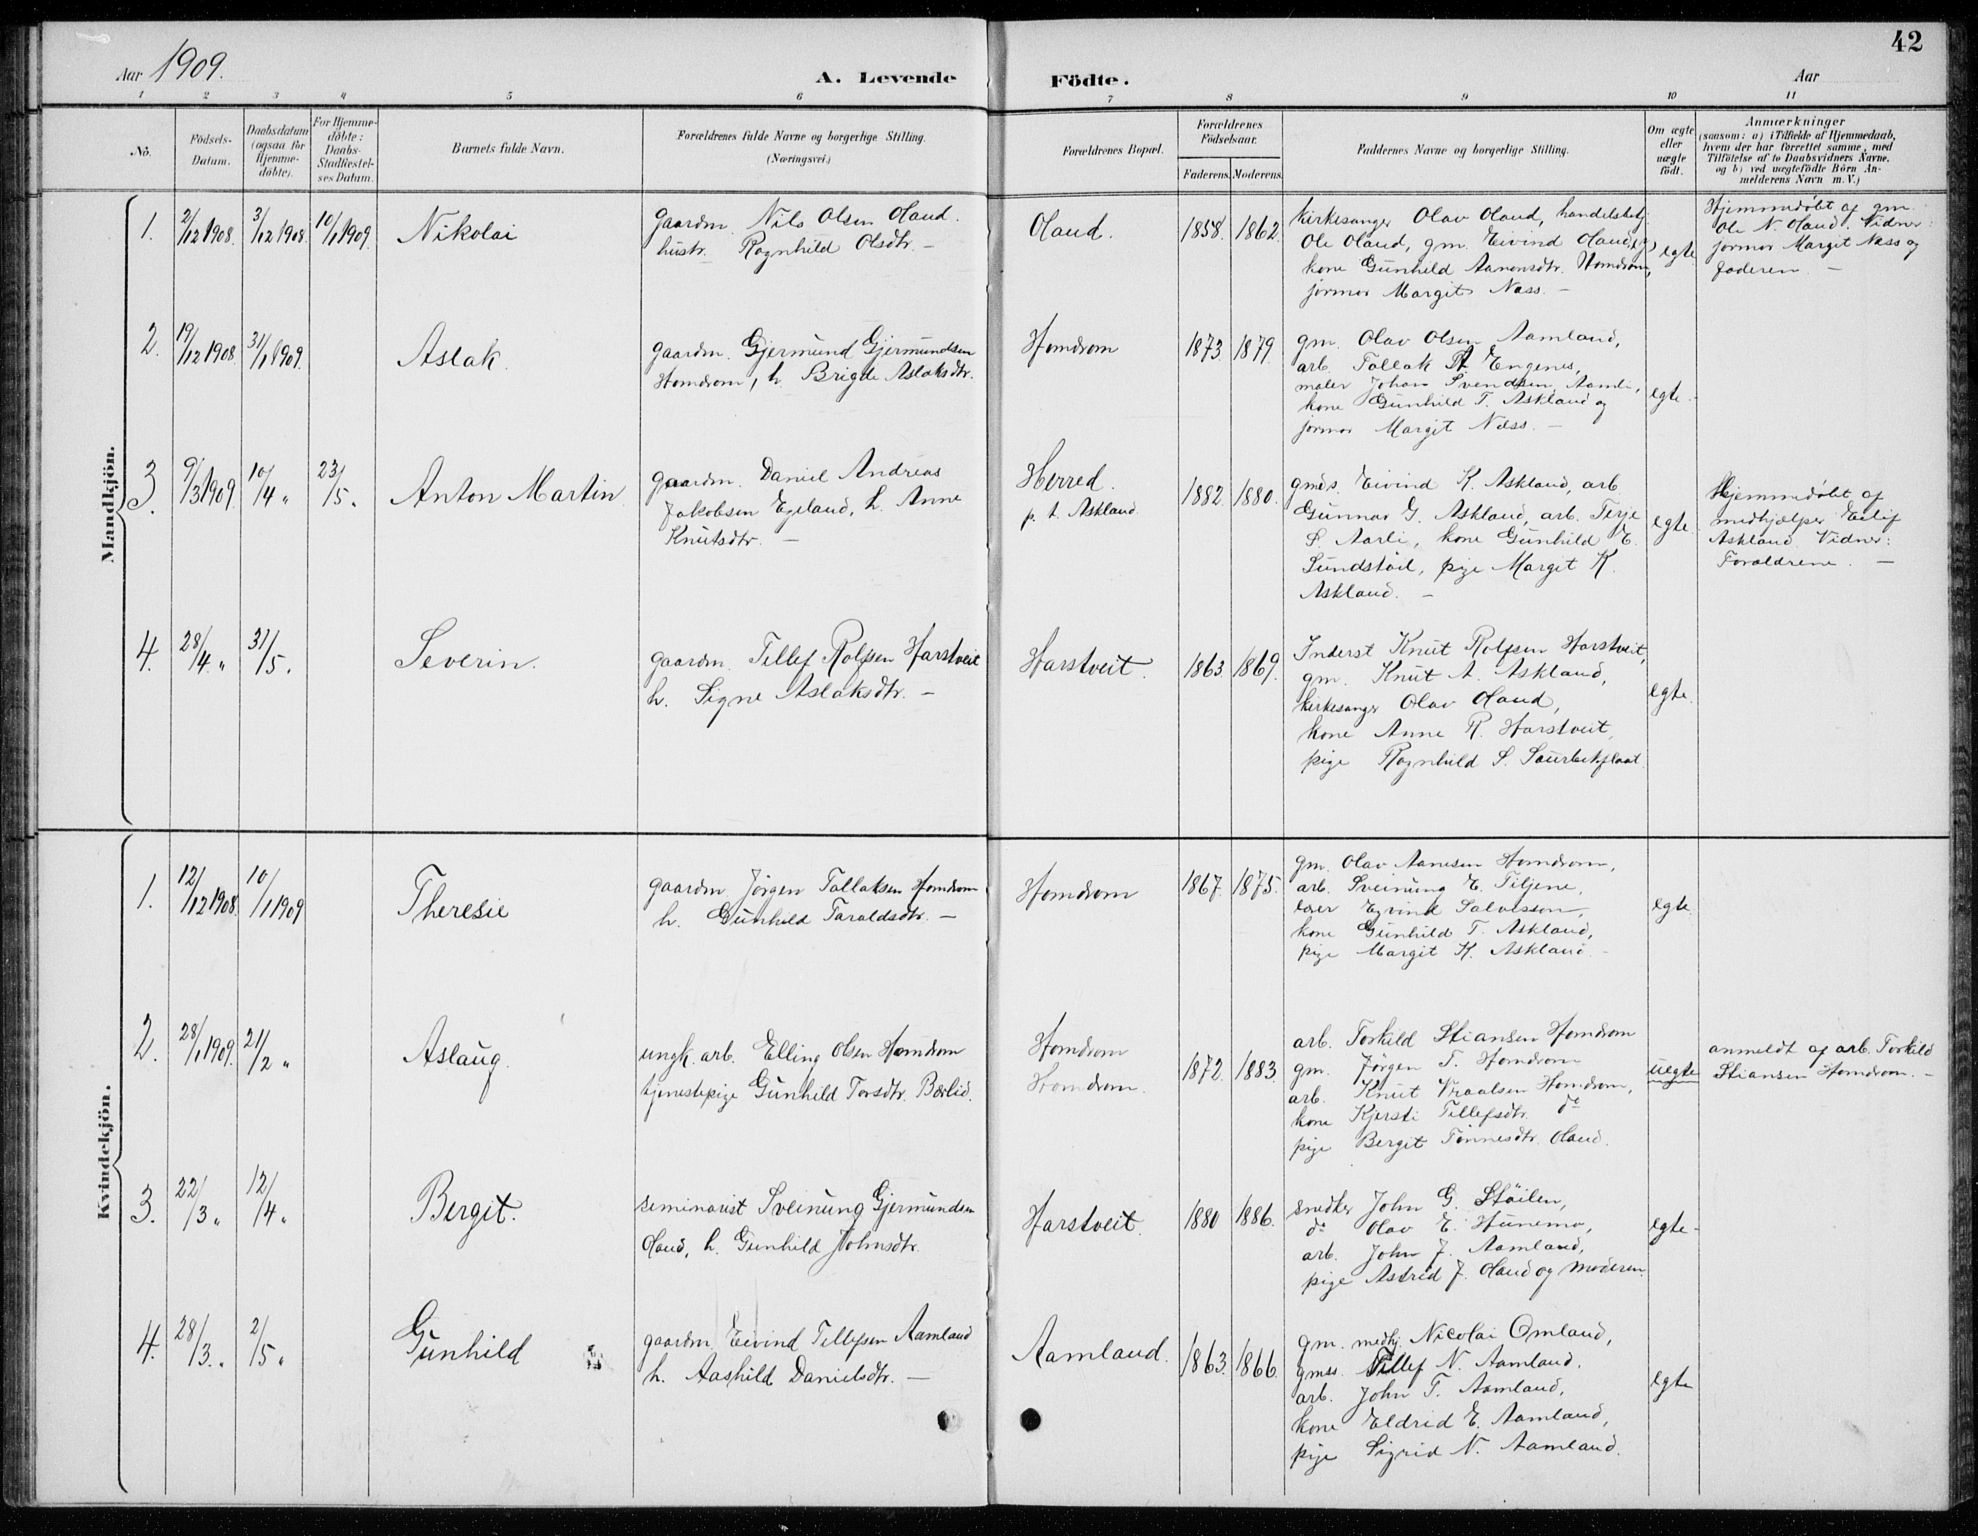 42
Aar 1909.
A. Levende Födte.
Aar
1 2 3 4 5 6 7 8 9 10 11
No.
Födsels-Datum.
Daabsdatum (ogsaa for Hjemme-döbte).
For Hjemme-döbte: Daabs-Stadfæstel-ses Datum.
Barnets fulde Navn.
Forældrenes fulde Navne og borgerlige Stilling. (Næringsvei.)
Forældrenes Bopæl.
Forældrenes Födselsaar.
Faderens. Moderens.
Faddernes Navne og borgerlige Stilling.
Om ægte eller uægte födt.
Anmærkninger
(saasom: a) i Tilfælde af Hjemmedaab,
hvem der har forrettet samme, med
Tilföielse af to Daabsvidners Navne,
og b) ved uægtefödte Börn An-
melderens Navn m. V.)
Mandkjön.
1. 2/12 1908. 3/12 1908. 10/1 1909. Nikolai
gaardm. Nils Olsen Oland.
hustr. Ragnhild Olsdtr. –
Oland. 1858. 1862
kirkesanger Olav Oland, handelsbetj.
Ole Oland, gm. Eivind Oland,
kone Gunhild Aanonsdtr. Homdrom,
jormor Margit Næss. –
egte.
Hjemmedøbt af gm.
Ole N. Oland. Vidner:
jormor Margit Næss og
faderen. –
2. 19/12 1908. 31/1 1909. Aslak.
gaardm. Gjermund Gjermundsen
Homdrom, h. Brigde Aslaksdtr.
Homdrom 1873 1879
gm. Olav Olsen Aamland,
arb. Tallak Engenes,
maler Johan Svendsen, Aamli,
kone Gunhild T. Askland og
jormor Margit Næss. –
egte.
3. 9/3 1909. 10/4 „ 23/5. Anton Martin
gaardm. Daniel Andreas
Jakobsen Egeland, h. Anne
Knutsdtr. –
Herred.
p. t. Askland
1882. 1880.
gmds. Eivind K. Askland, arb.
Gunnar G. Askland, arb. Terje
S. Aarli, kone Gunhild E.
Sundstøil, pige Margit K.
Askland. –
egte
Hjemmedøbt af
medhjælper Eilif
Askland. Vidner:
Forældrene. –
4. 28/4. „ 31/5. Severin.
gaardm. Tellef Rolfsen Harstveit
h. Signe Aslaksdtr. –
Harstveit. 1863. 1869.
Inderst Knut Rolfsen Harstveit,
gm. Knut A. Askland,
kirkesanger Olav Oland,
kone Anne R. Harstveit,
pige Ragnhild S.
egte.
Kvindekjön.
1. 12/12 1908. 10/1 1909 Theresie
gaardm Jörgen Tallaksen Homdrom
h. Gunhild Taraldsdtr. –
Homdrom 1867. 1875.
gm. Olav Aanesen Homdrom,
arb. Sveinung E. Tiljene,
lærer Eyvind Salvesson,
kone Gunhild T. Askland,
pige Margit K. Askland –
egte.
2. 28/1 1909. 21/2 „ Aslaug.
ungk. arb. Elling Olsen Homdrom
tjenestepige Gunhild Torsdtr. Bærlid.
Homdrom
Homdrom.
1872. 1883.
arb. Torkild Stiansen Homdrom
gm. Jörgen T. Homdrom
arb. Knut Vraalsen Homdrom,
kone Kjersti Tellefsdtr. do
pige Bergit Tönnesdtr. Oland.
uegte
anmeldt af arb. Torkild
Stiansen Homdrom. –
3. 22/3 „ 12/4 „ Bergit.
seminarist Sveinung Gjermundsen
Oland, h. Gunhild Johnsdtr.
Harstveit. 1880 1886.
snedker John G. Støilen,
do Olav E. Hunemo,
arb. John J. Aamland,
pige Astrid J. Oland og Moderen.
egte –
4. 28/3. „ 2/5 „ Gunhild
gaardm. Eivind Tellefsen Aamland
h. Aashild Danielsdtr. –
Aamland. 1863. 1866.
gm. medhj. Nicolai Omland,
gmss. Tellef N. Aamland,
arb. John T. Aamland,
kone Eldrid E. Aamland,
pige Sigrid N. Aamland.
egte